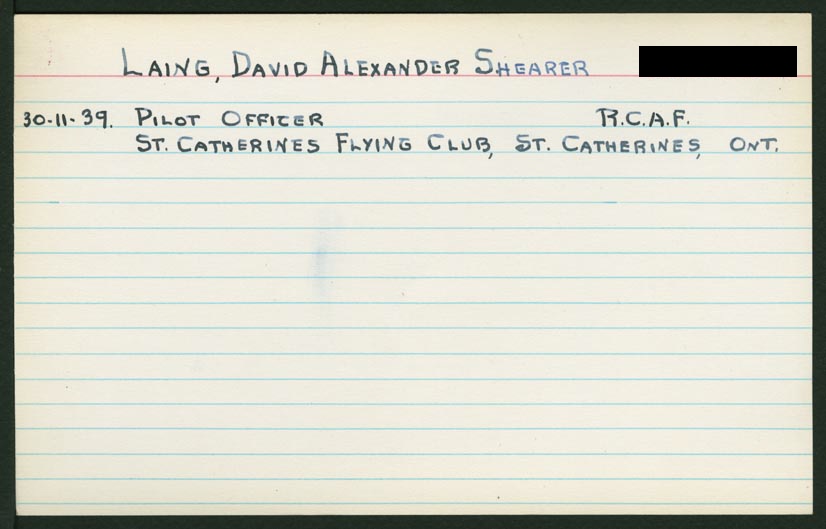 LAING, DAVID ALEXANDER SHEARER
30-11-39. PILOT OFFICER R.C.A.F.
ST. CATHERINES FLYING CLUB, ST. CATHERINES, ONT.